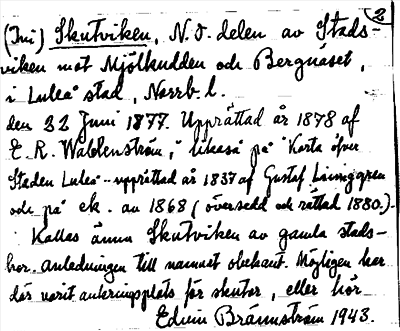 2
(Ini) Skutviken, N.O. delen av Stads-
viken mot Mjölkudden och Bergnäset,
i Luleå stad, Norrb. l.
den 22 Juni 1877. Upprättad år 1878 af
E. R. Wahlenström," likaså på "Karta öfver
Staden Luleå - upprättad år 1837 af Gustaf Ljunggren
och på ek. av 1868 (översedd och rättad 1880.).
Kallas ännu Skutviken av gamla stads-
bor. Anledningen till namnet obekant. Möjligen har
där varit ankringsplats för skutor, eller hör
Edvin Brännström 1943.